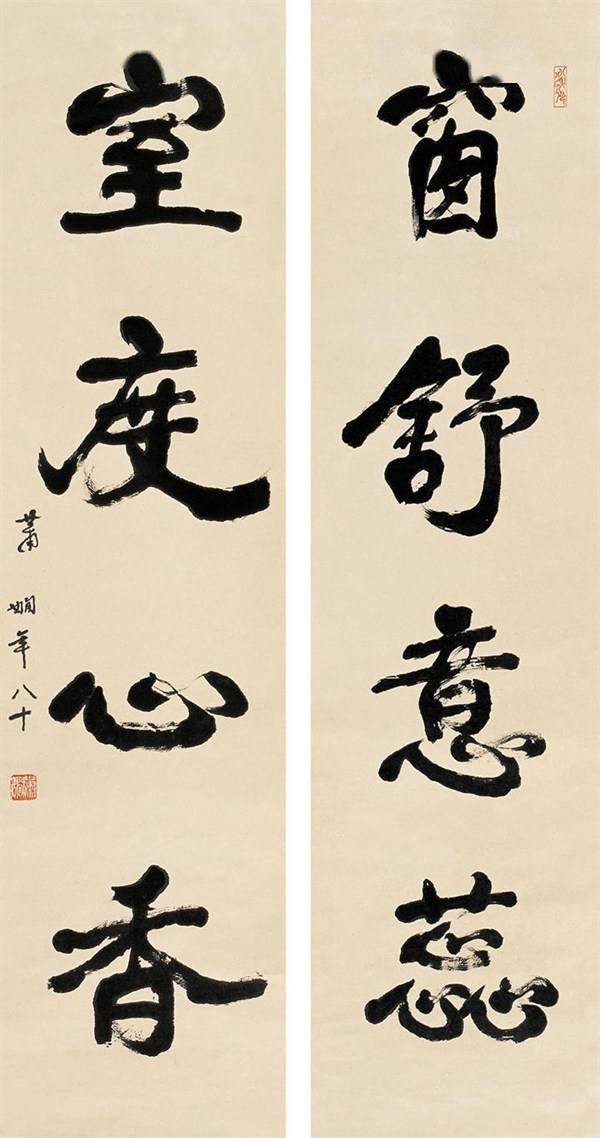 窗舒意蕊
室度心香
萧娴年八十